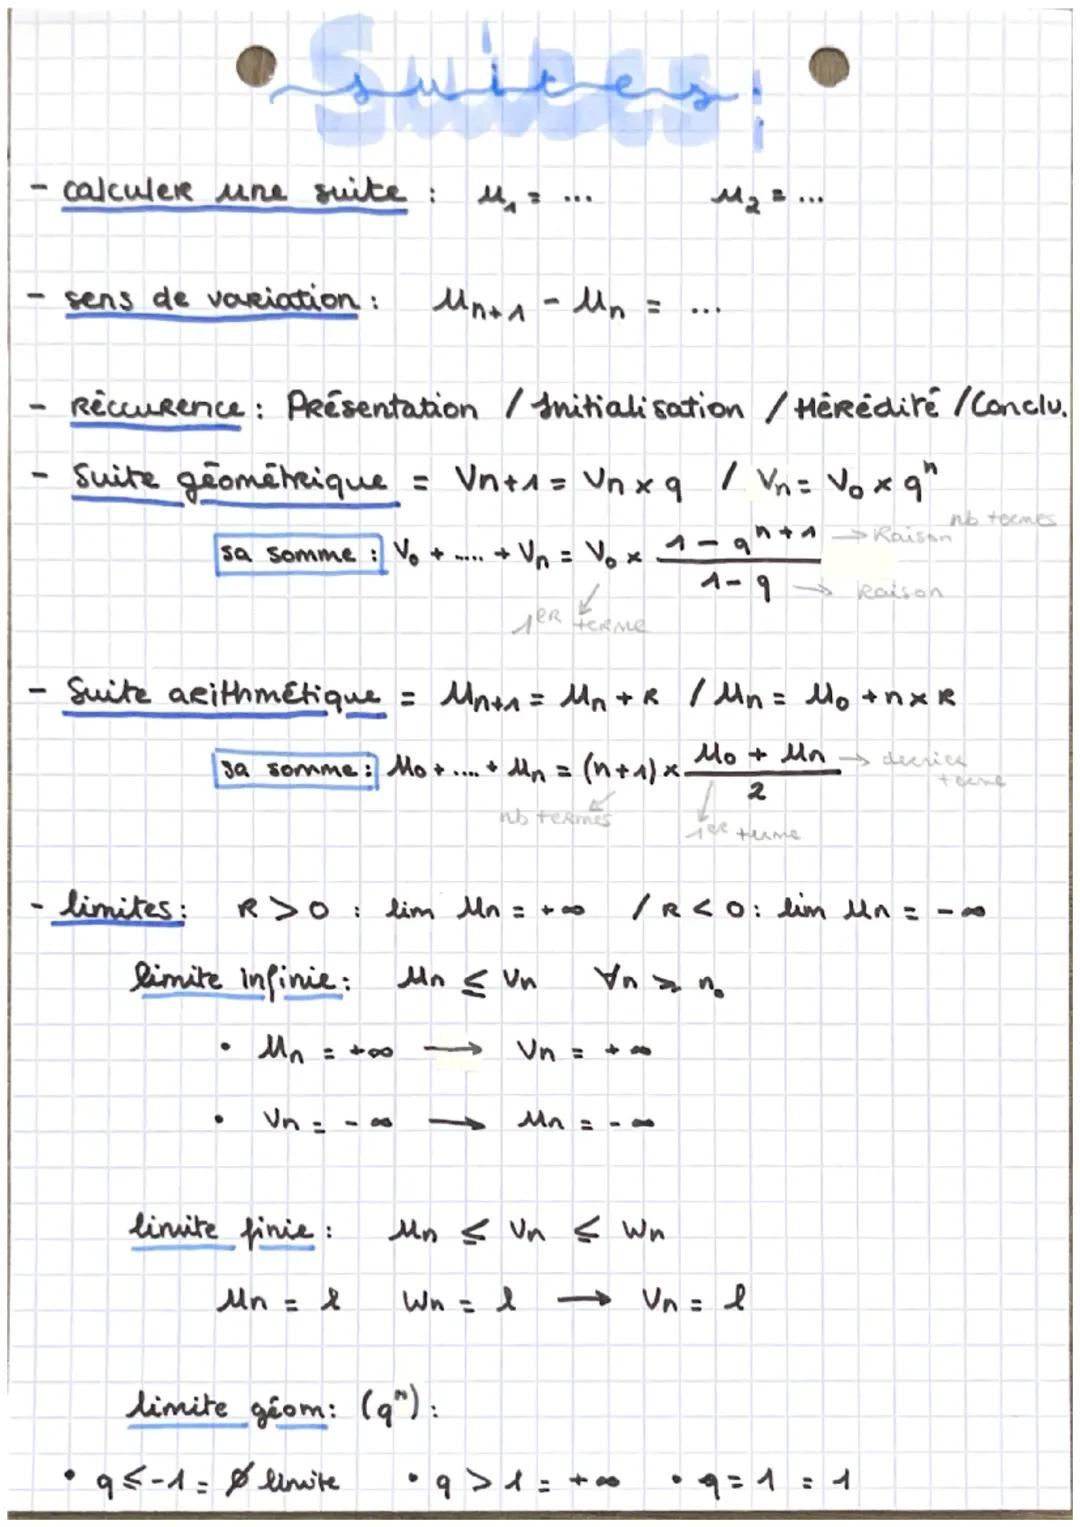 Suites :
- calculer une suite : u₁ = ... u₂ = ...
- sens de variation : Uₙ₊₁ - Uₙ = ...
- Réccurence : Présentation / Initialisation / Hérédité / Conclu.
- Suite géométrique = Vn+1 = Vn × q / Vn = V₀ × qⁿ
nb termes
sa somme : V₀ + ..... + Vn = V₀ × (1 - qⁿ⁺¹)/(1 - q) → Raison → Raison
1er terme
- Suite arithmétique = Uₙ₊₁ = Uₙ + R / Uₙ = U₀ + n × R
sa somme : U₀ + .... + Uₙ = (n+1) × (U₀ + Uₙ)/2 → dernier terme
nb termes 1er terme
- limites : R > 0 : lim Un = +∞ / R < 0 : lim Un = -∞
limite infinie : Un ≤ Vn ∀n ≥ n₀
• Un = +∞ → Vn = +∞
• Vn = -∞ → Un = -∞
limite finie : Un ≤ Vn ≤ Wn
Un = l Wn = l → Vn = l
limite géom : (qⁿ) :
• q ≤ -1 = ∅ limite • q > 1 = +∞ • q = 1 = 1